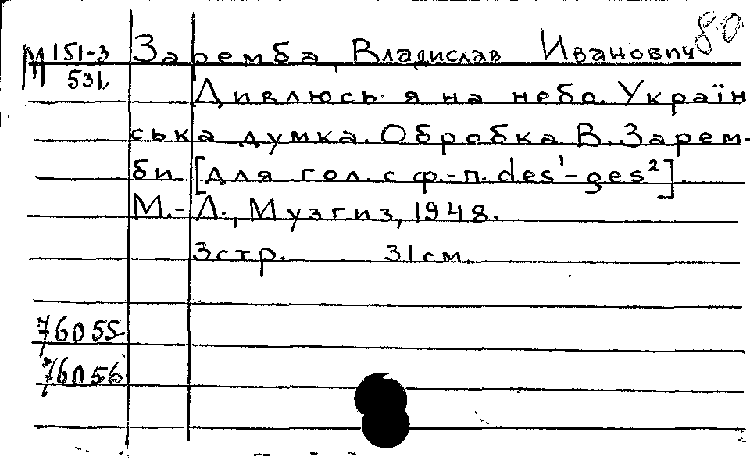 80
М 151-3
531
Заремба, Владислав Иванович
Дивлюсь я на небо. Україн-
ська думка. Обробка В. Зарем-
би. [Для гол. с ф.-п. des¹-ges²].
М.-Л., Музгиз, 1948.
3 стр. 31 см.
76055
76056